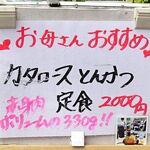 お母さんおすすめ
カタロースとんかつ
赤身肉 定食 2000円
ボリュームの330g!!